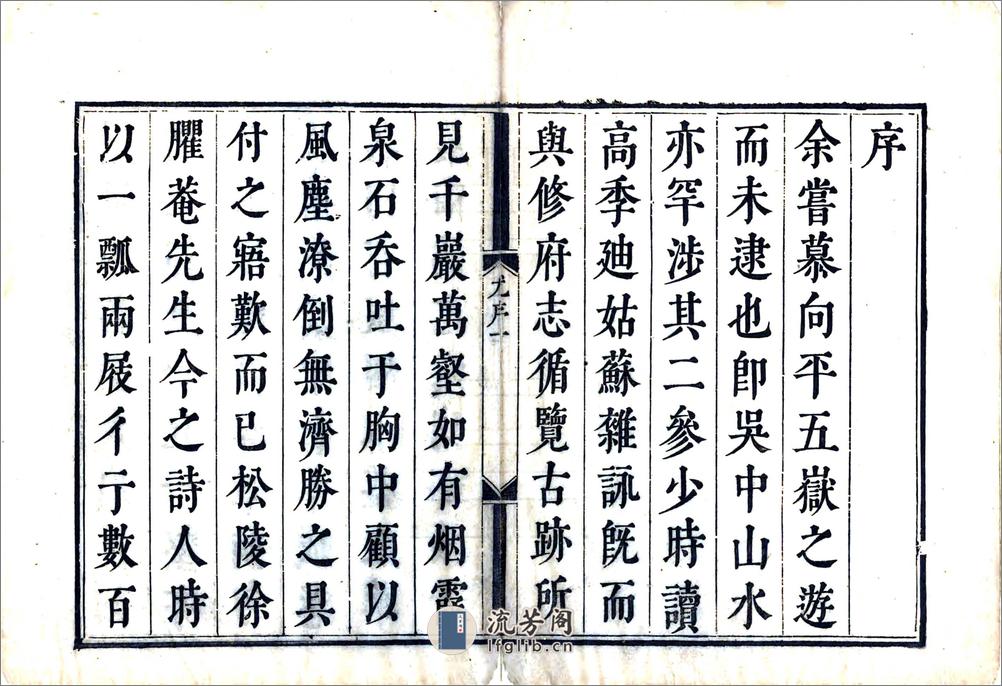 序
余嘗慕向平五嶽之遊
而未逮也卽吳中山水
亦罕涉其二參少時讀
高季廸姑蘇雜詠旣而
與修府志循覽古跡所
尤序一
見千巖萬壑如有烟霞
泉石吞吐于胸中顧以
風塵潦倒無濟勝之具
付之寤歎而已松陵徐
臞菴先生今之詩人時
以一瓢兩屐彳亍數百
流芳阁
lfglib.cn